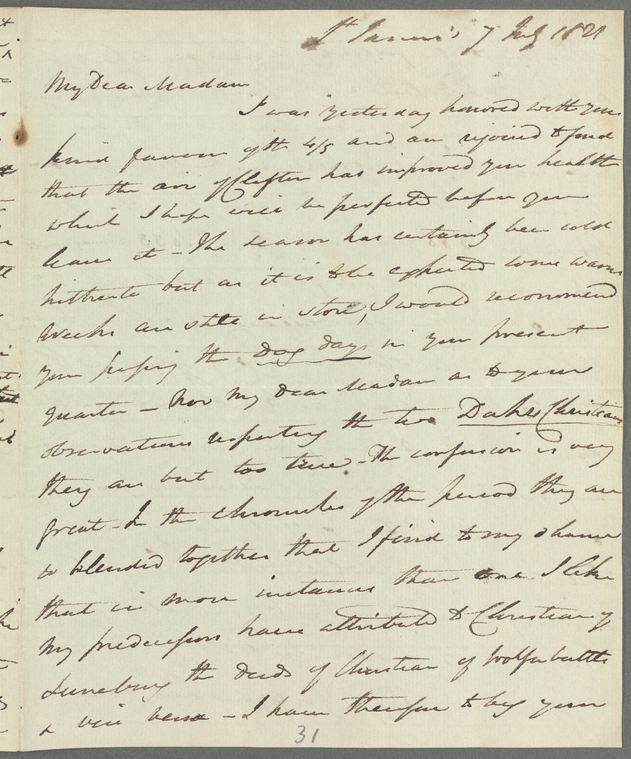 St James's 7 July 1821
My Dear Madam
I was yesterday honored with your
kind favour of the 4/5 and am rejoiced to find
that the air of Clifton has improved your health
which I hope will be perfected before you
leave it - The season has certainly been cold
hitherto but as it is to be expected some warm
weeks are still in store, I would recommend
your passing the Dog days in your present
quarters - Now my Dear Madam as to your
observations respecting the two Dukes Christian
they are but too true - The confusion is very
great - In the chronicles of the period they are
so blended together that I find to my shame
that in more instances than one I like
my predecessors have attributed to Christian of
Luneburg the deeds of Christian of Wolfenbuttle
& vice versa - I have therefore to beg your
31